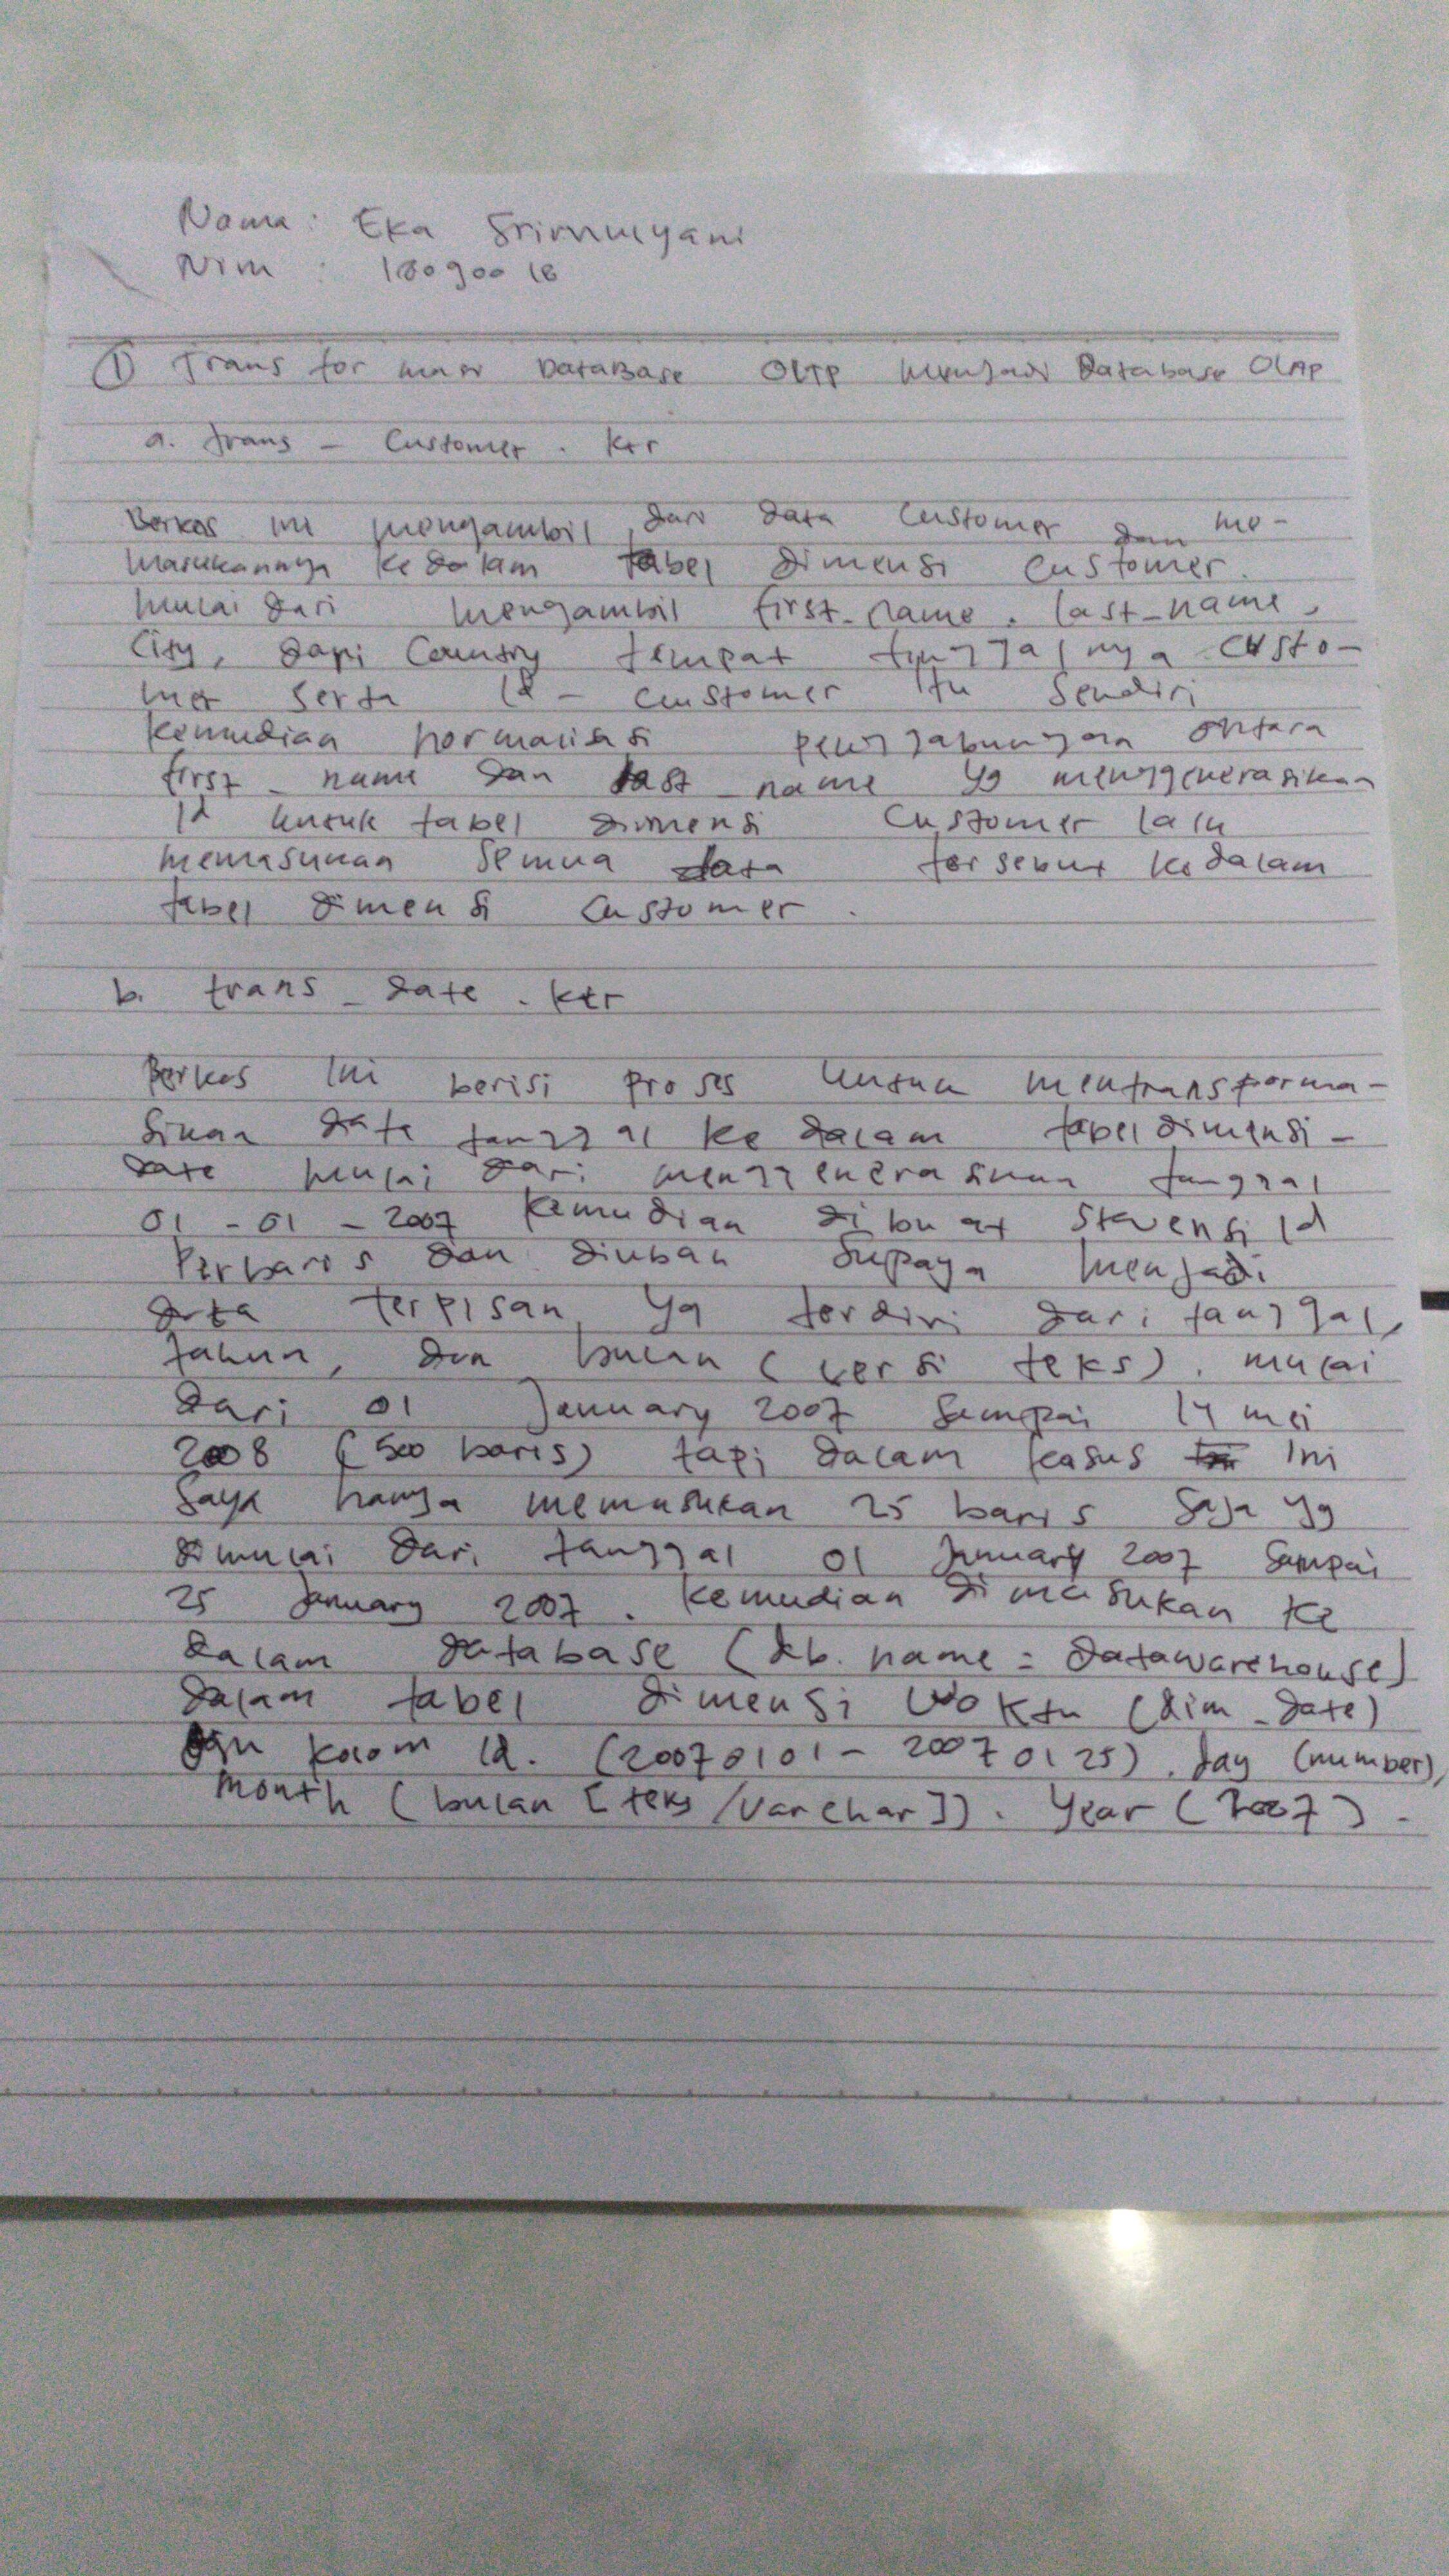 Nama : Eka Srimulyani
Nim : 180900 18
① Trans for masi DataBase OLTP menjadi Database OLAP
a. trans - Customer . ktr
Berkas ini mengambil dari data Customer dan me-
masukannya kedalam tabel dimensi customer.
mulai dari mengambil first_name . last_name ,
City, dari Country tempat tinggalnya custo-
mer serta id - customer itu sendiri
kemudian normalisasi penggabungan antara
first - name dan last - name yg menggenerasikan
id untuk tabel dimensi Customer lalu
memasukan semua data tersebut kedalam
tabel dimensi Customer .
b. trans - date . ktr
Berkas ini berisi proses untuk mentransforma-
sikan data tanggal ke dalam tabel dimensi -
date mulai dari menggenerasikan tanggal
01 - 01 - 2007 kemudian dibuat id
Perbaris dan diubah supaya menjadi
data terpisah yg terdiri dari tanggal,
tahun, dan bulan ( versi teks ) . mulai
dari 01 January 2007 sampai 14 mei
2008 ( 500 baris ) tapi dalam kasus ini
saya hanya memasukan 25 baris saja yg
dimulai dari tanggal 01 January 2007 sampai
25 January 2007 . kemudian dimasukan ke
dalam database ( db. name = datawarehouse )
dalam tabel dimensi waktu (dim - date)
dgn kolom id. (20070101 - 20070125) . day (number),
month ( bulan [ teks / varchar ] ) . Year ( 2007 ) .